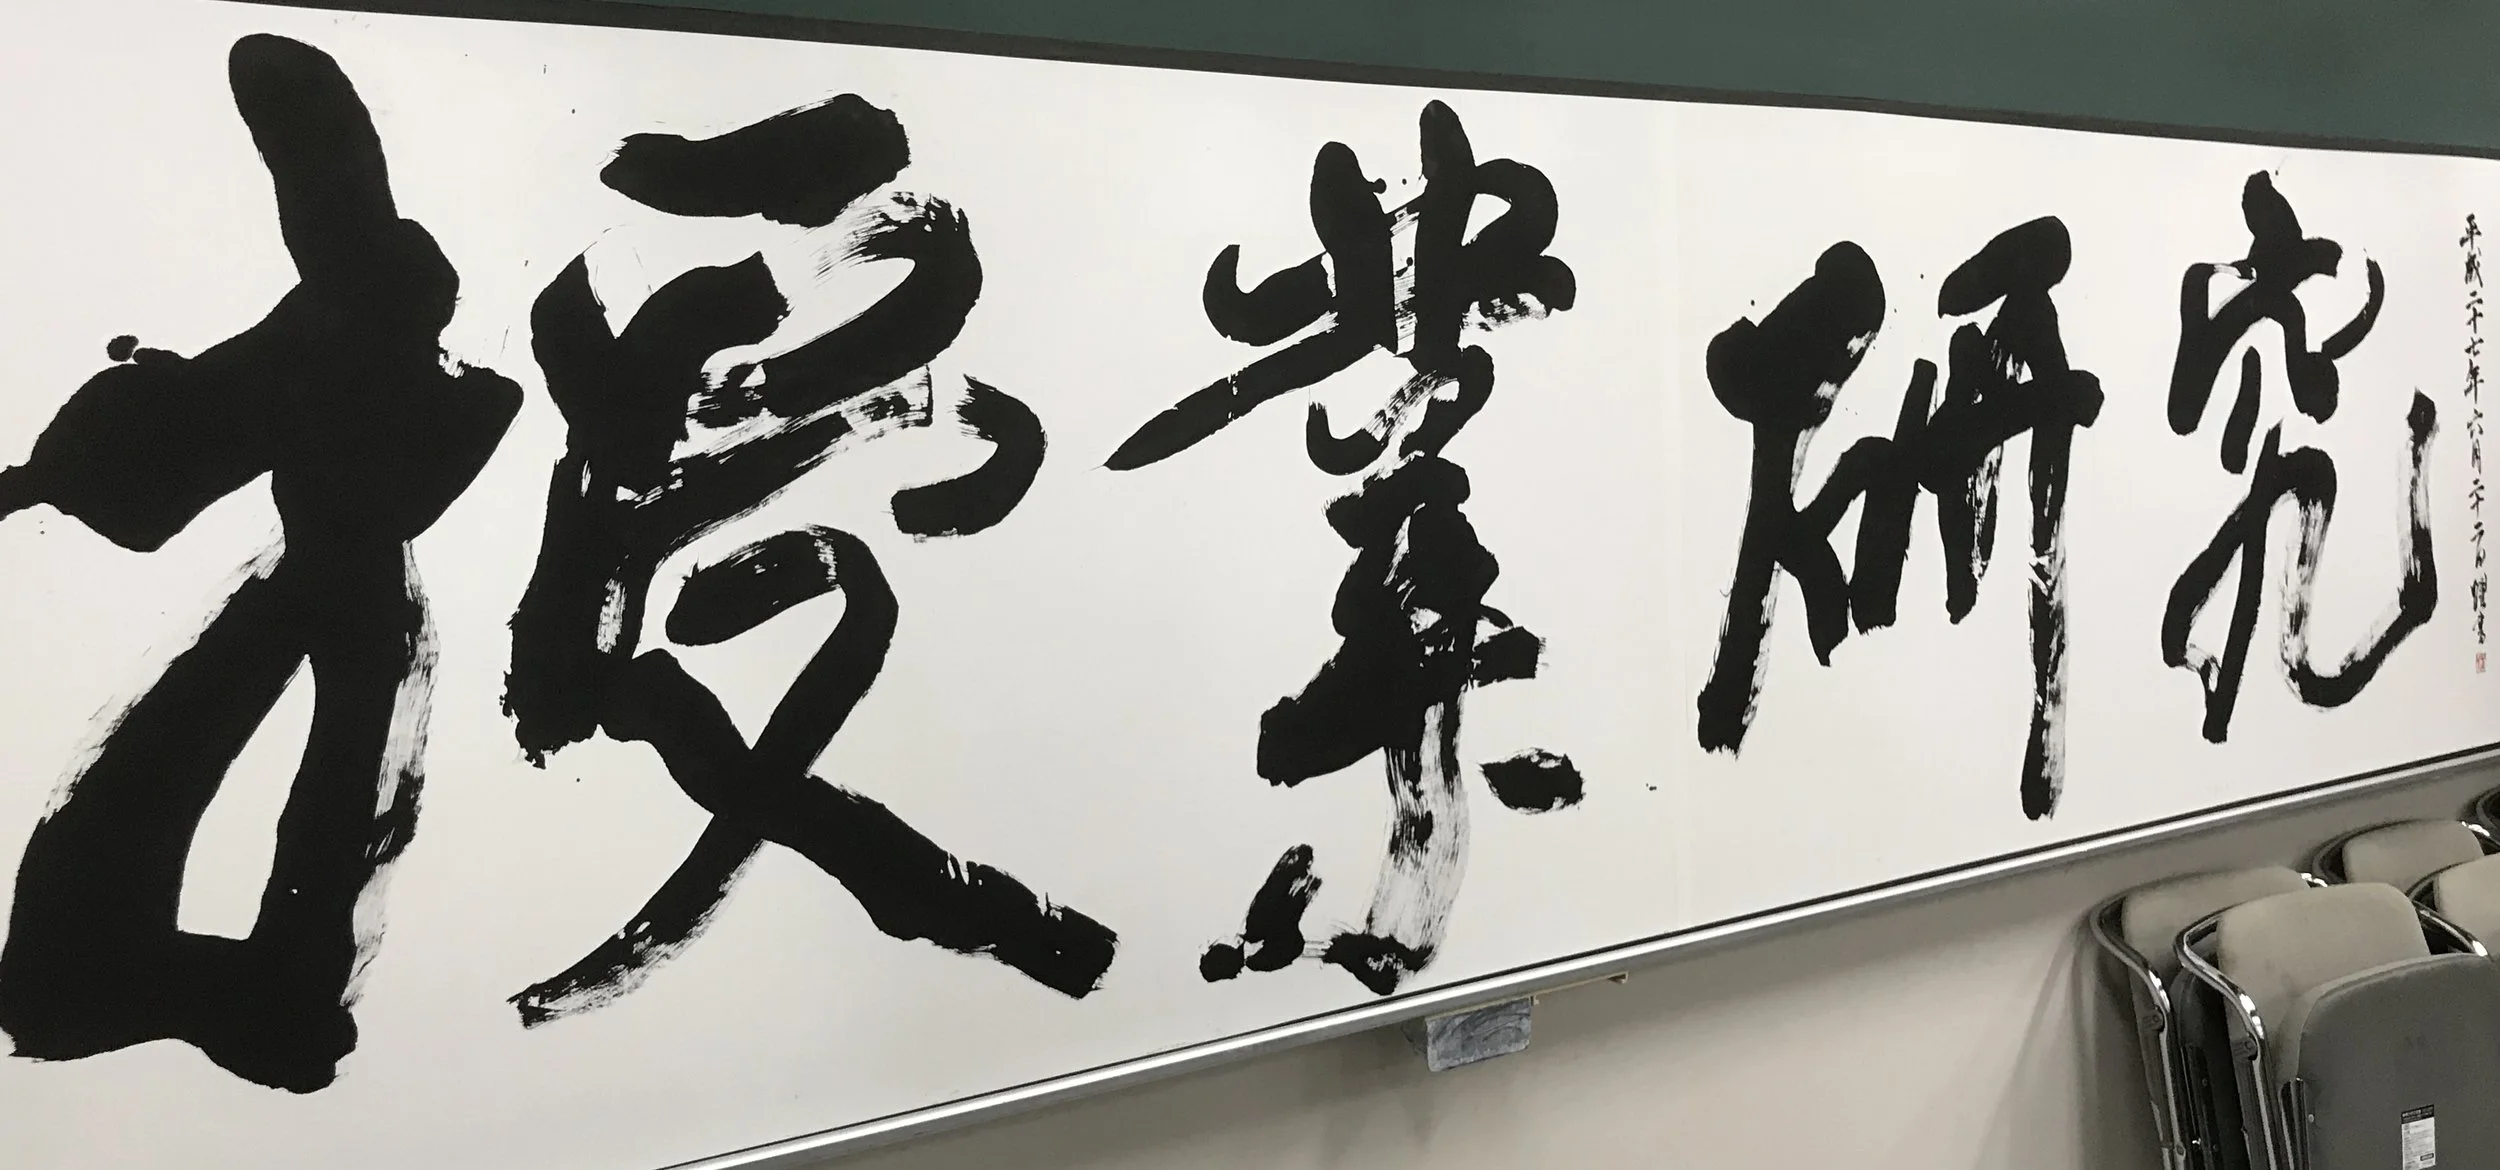 授業研究
平成二十七年六月二十二日